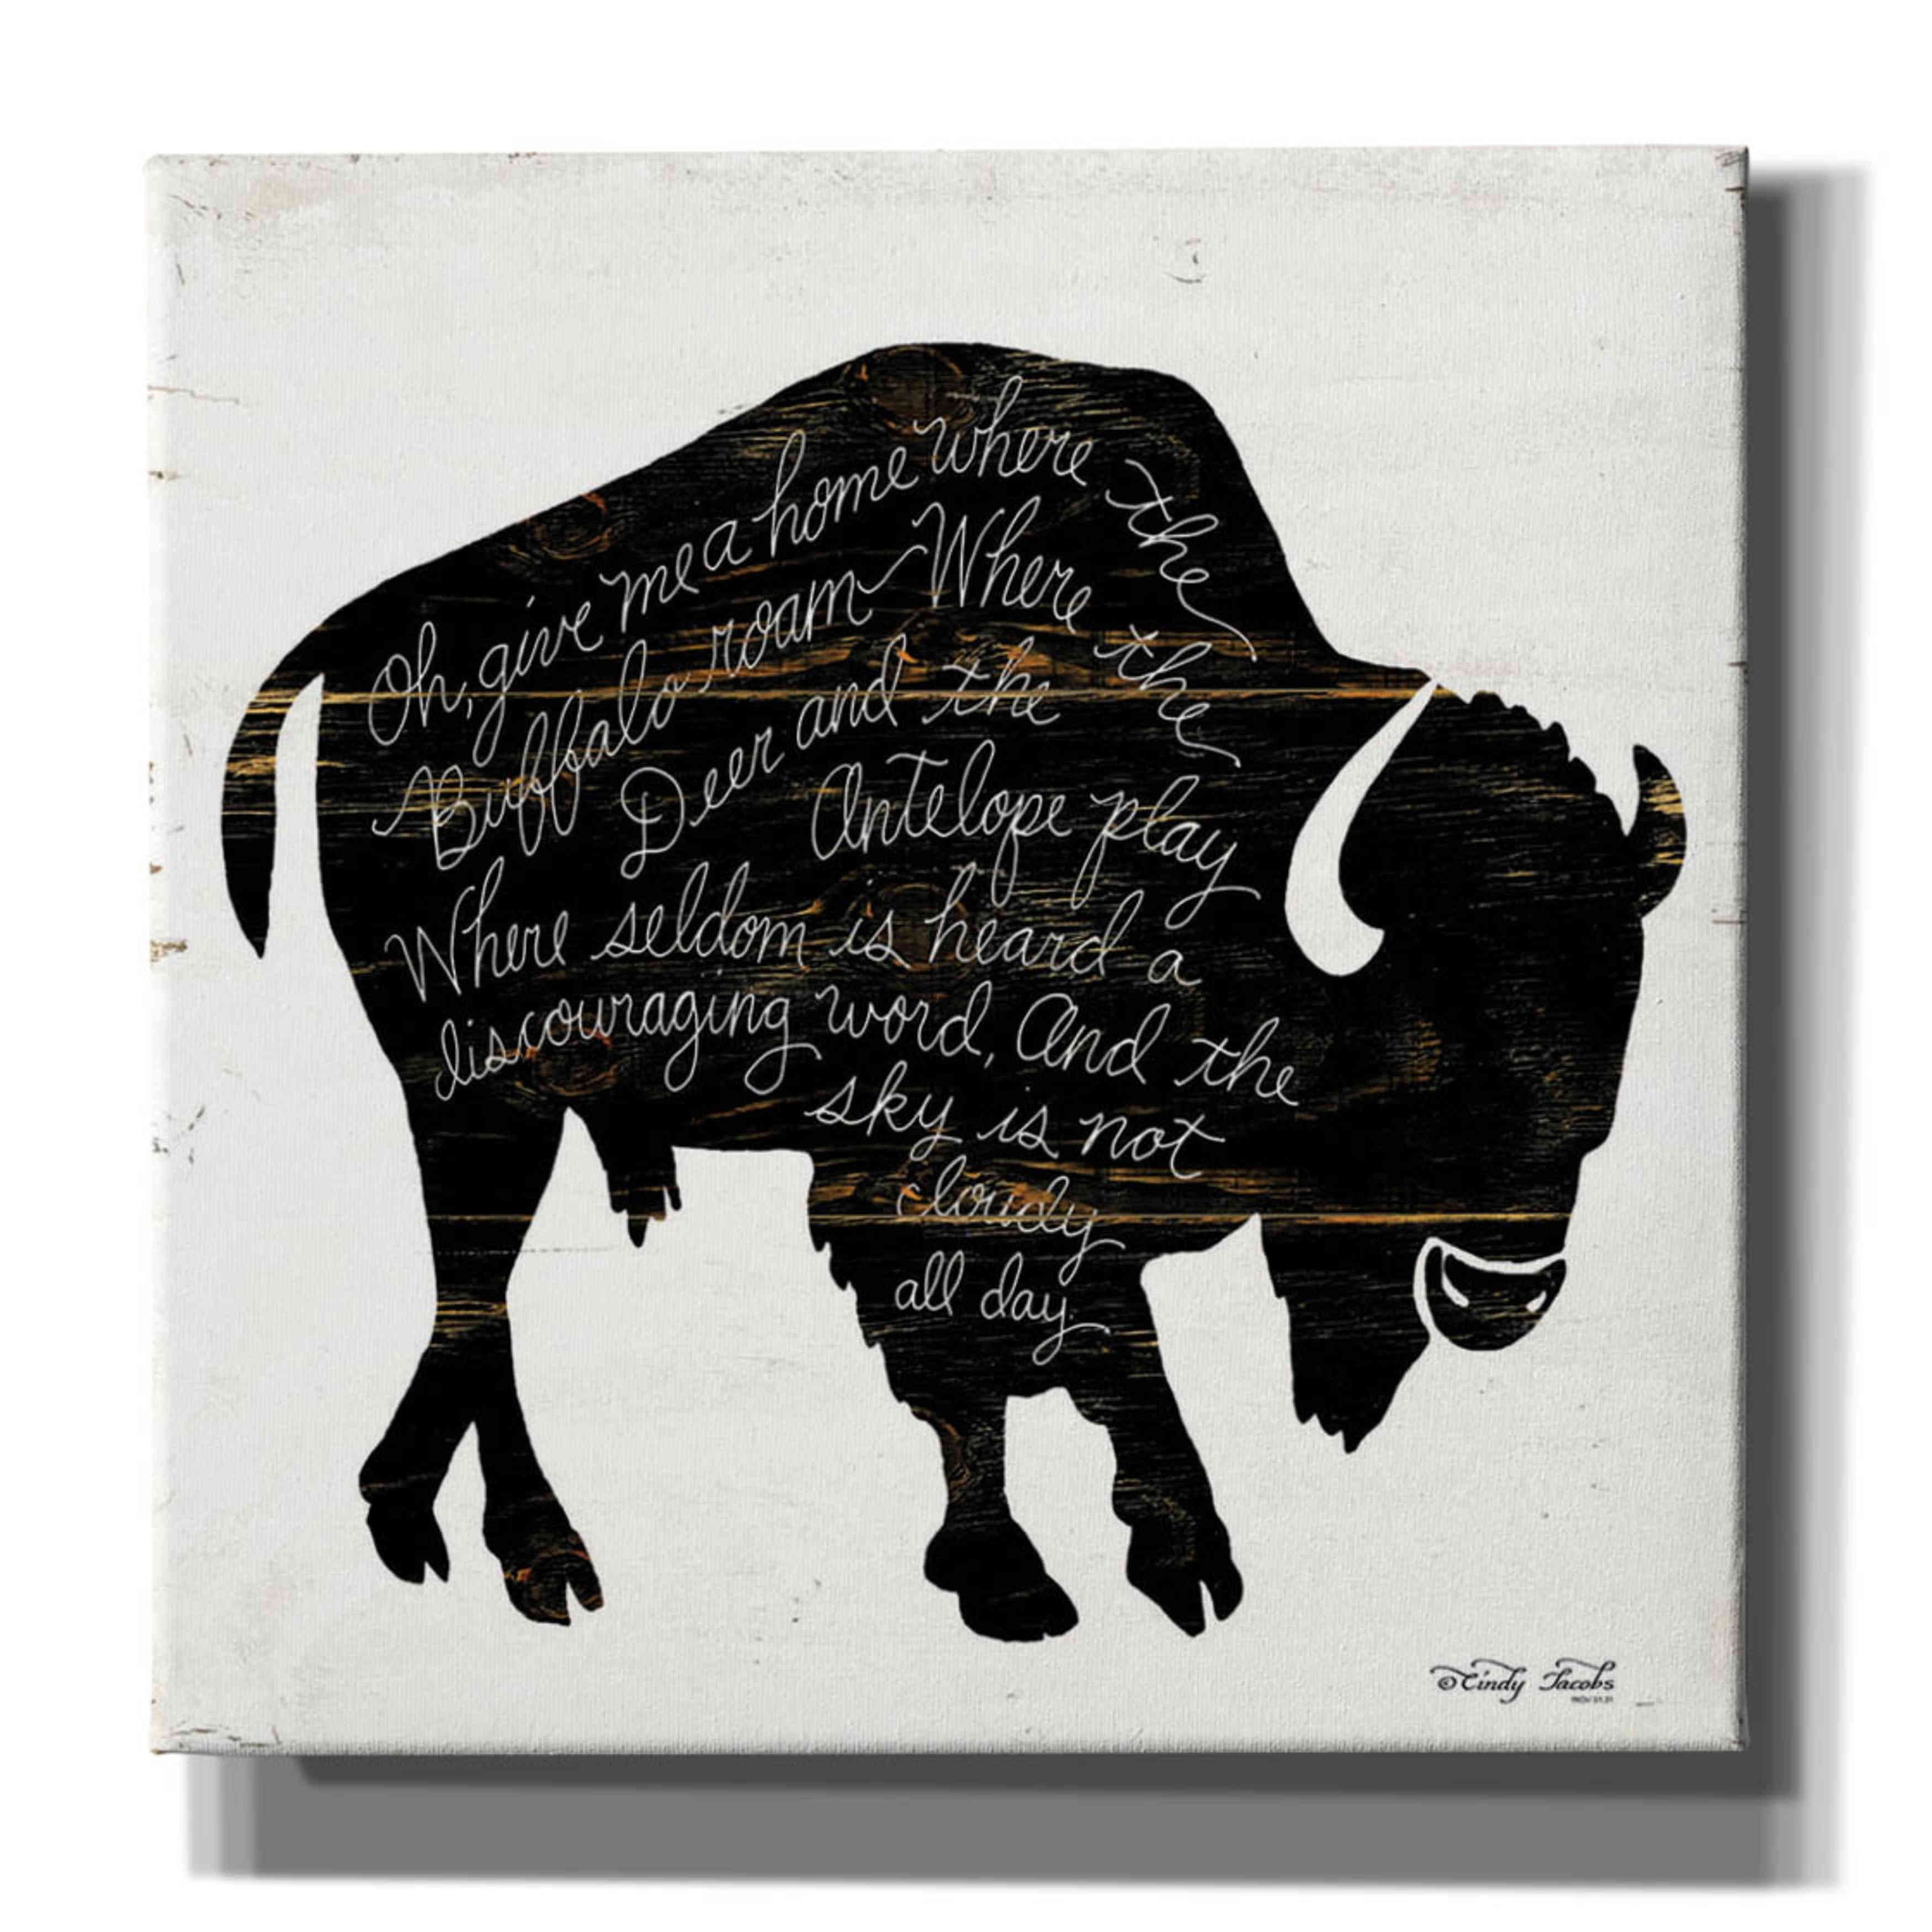 Oh, give me a home where the
Buffalo roam Where the
Deer and the
Antelope play
Where seldom is heard a
discouraging word, And the
sky is not
cloudy
all day.
©Cindy Jacobs